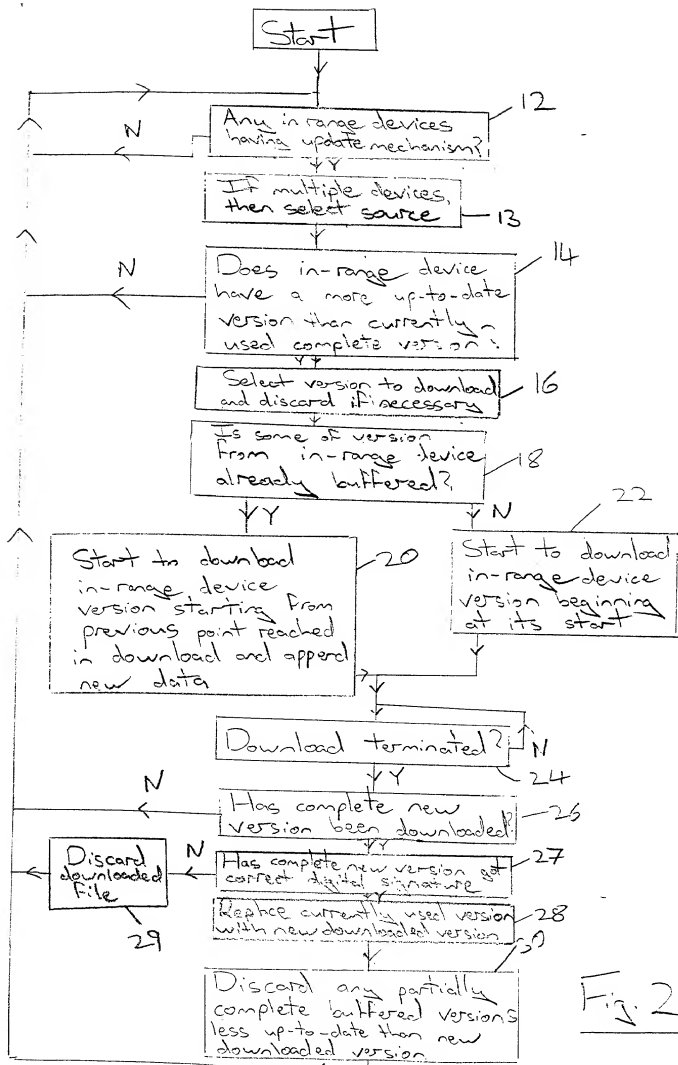 Start
12
N
Any in range devices
having update mechanism?
Y
If multiple devices,
then select source
13
N
Does in-range device
have a more up-to-date
version than currently
used complete version?
14
Y
Select version to download
and discard if necessary
16
Is some of version
from in-range device
already buffered?
18
Y
N
22
Start to download
in-range device
version starting from
previous point reached
in download and append
new data
20
Start to download
in-range device
version beginning
at its start
Download terminated?
N
24
Y
N
Has complete new
version been downloaded?
26
Y
Discard
downloaded
file
29
N
Has complete new version got
correct digital signature
27
Y
Replace currently used version
with new downloaded version
28
30
Discard any partially
complete buffered versions
less up-to-date than new
downloaded version
Fig. 2